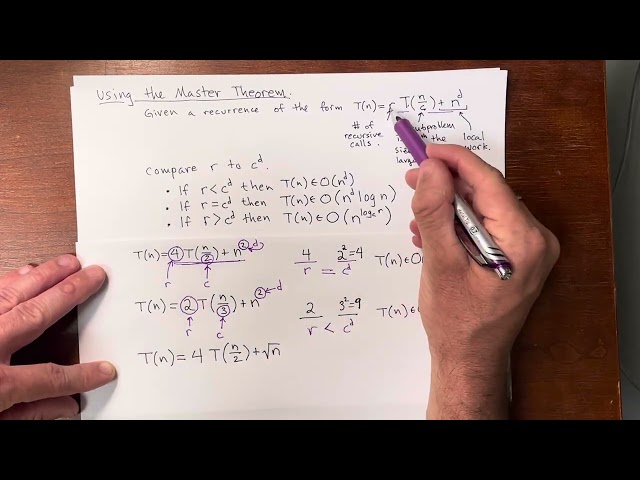 Using the Master Theorem.
Given a recurrence of the form T(n) = r T(n/c) + n^d
# of recursive calls.
subproblem
the
size
large
local work.
compare r to c^d
• If r < c^d then T(n) ∈ O(n^d)
• If r = c^d then T(n) ∈ O(n^d log n)
• If r > c^d then T(n) ∈ O(n^(log_c r))
T(n) = 4 T(n/2) + n^2 ← d
r c
4 2^2=4
r = c^d
T(n) ∈ O(
T(n) = 2 T(n/3) + n^2 ← d
r c
2 3^2=9
r < c^d
T(n) ∈
T(n) = 4 T(n/2) + √n